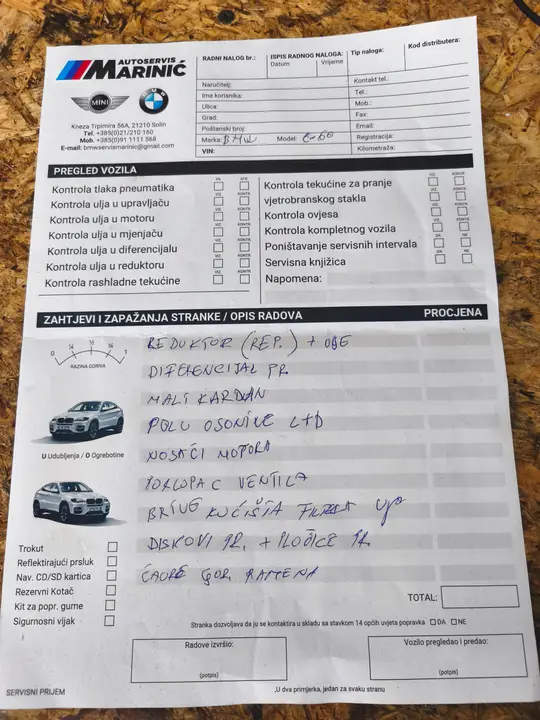 AUTOSERVIS
MARINIĆ
MINI
BMW
Kneza Trpimira 56A, 21210 Solin
Tel. +385(0)21/210 160
Mob. +385(0)91 1111 568
E-mail: bmwservismarinic@gmail.com
RADNI NALOG br.:
ISPIS RADNOG NALOGA:
Datum Vrijeme
Tip naloga:
Kod distributera:
Naručitelj:
Kontakt tel.:
Ime korisnika:
Tel.:
Ulica:
Mob.:
Grad:
Fax:
Poštanski broj:
Email:
Marka: BMW Model: E-60
Registracija:
VIN:
Kilometraža:
PREGLED VOZILA
Kontrola tlaka pneumatika
Kontrola ulja u upravljaču
Kontrola ulja u motoru
Kontrola ulja u mjenjaču
Kontrola ulja u diferencijalu
Kontrola ulja u reduktoru
Kontrola rashladne tekućine
Kontrola tekućine za pranje
vjetrobranskog stakla
Kontrola ovjesa
Kontrola kompletnog vozila
Poništavanje servisnih intervala
Servisna knjižica
Napomena:
ZAHTJEVI I ZAPAŽANJA STRANKE / OPIS RADOVA PROCJENA
0 1
RAZINA GORIVA
REDUKTOR (REP.) +
DIFERENCIJAL PR
MALI KARDAN
POLU OSOVINE L+D
NOSAČI MOTORA
POKLOPAC VENTILA
BRTVE KUĆIŠTA FILTERA
DISKOVI PR. + PLOČICE PR.
ČAURE GOR. RAMENA
U Udubljenja / O Ogrebotine
Trokut
Reflektirajući prsluk
Nav. CD/SD kartica
Rezervni Kotač
Kit za popr. gume
Sigurnosni vijak
TOTAL:
Stranka dozvoljava da ju se kontaktira u skladu sa stavkom 14 općih uvjeta popravka DA NE
Radove izvršio:
(potpis)
Vozilo pregledao i predao:
(potpis)
SERVISNI PRIJEM
U dva primjerka, jedan za svaku stranu